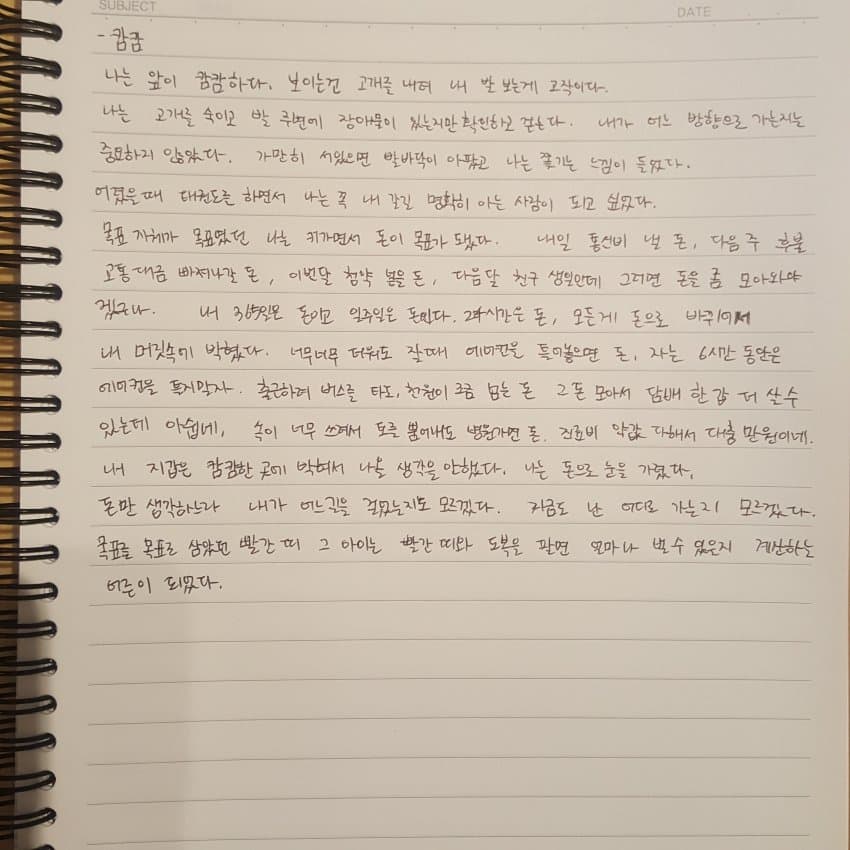 SUBJECT
DATE
- 캄캄
나는 앞이 캄캄하다. 보이는건 고개를 내려 내 발 보는게 고작이다.
나는 고개를 숙이고 발 주변에 장애물이 있는지만 확인하고 걷는다. 내가 어느 방향으로 가는지는
중요하지 않았다. 가만히 서있으면 발바닥이 아팠고 나는 쫓기는 느낌이 들었다.
어렸을때 태권도를 하면서 나는 꼭 내 갈길 명확히 아는 사람이 되고 싶었다.
목표 자체가 목표였던 나는 커가면서 돈이 목표가 됐다. 내일 통신비 낼 돈, 다음 주 후불
교통대금 빠져나갈 돈, 이번달 청약 넣을 돈, 다음달 친구 생일인데 그러면 돈을 좀 모아놔야
겠구나. 내 365일은 돈이고 일주일은 돈이다. 24시간은 돈, 모든게 돈으로 바뀌어서
내 머릿속에 박혔다. 너무너무 더워도 잘때 에어컨을 틀어놓으면 돈, 자는 6시간 동안은
에어컨을 틀지말자. 출근하려 버스를 타도, 천원이 조금 넘는 돈 그 돈 모아서 담배 한 갑 더 살 수
있는데 아쉽네, 속이 너무 쓰려서 토를 뿜어내도 병원가면 돈. 진료비 약값 다해서 대충 만원이네.
내 지갑은 캄캄한 곳에 박혀서 나올 생각을 안했다. 나는 돈으로 눈을 가렸다.
돈만 생각하느라 내가 어느길을 걸었는지도 모르겠다. 지금도 난 어디로 가는지 모르겠다.
목표를 목표로 삼았던 빨간 띠 그 아이는 빨간 띠와 도복을 팔면 얼마나 벌 수 있을지 계산하는
어른이 되었다.